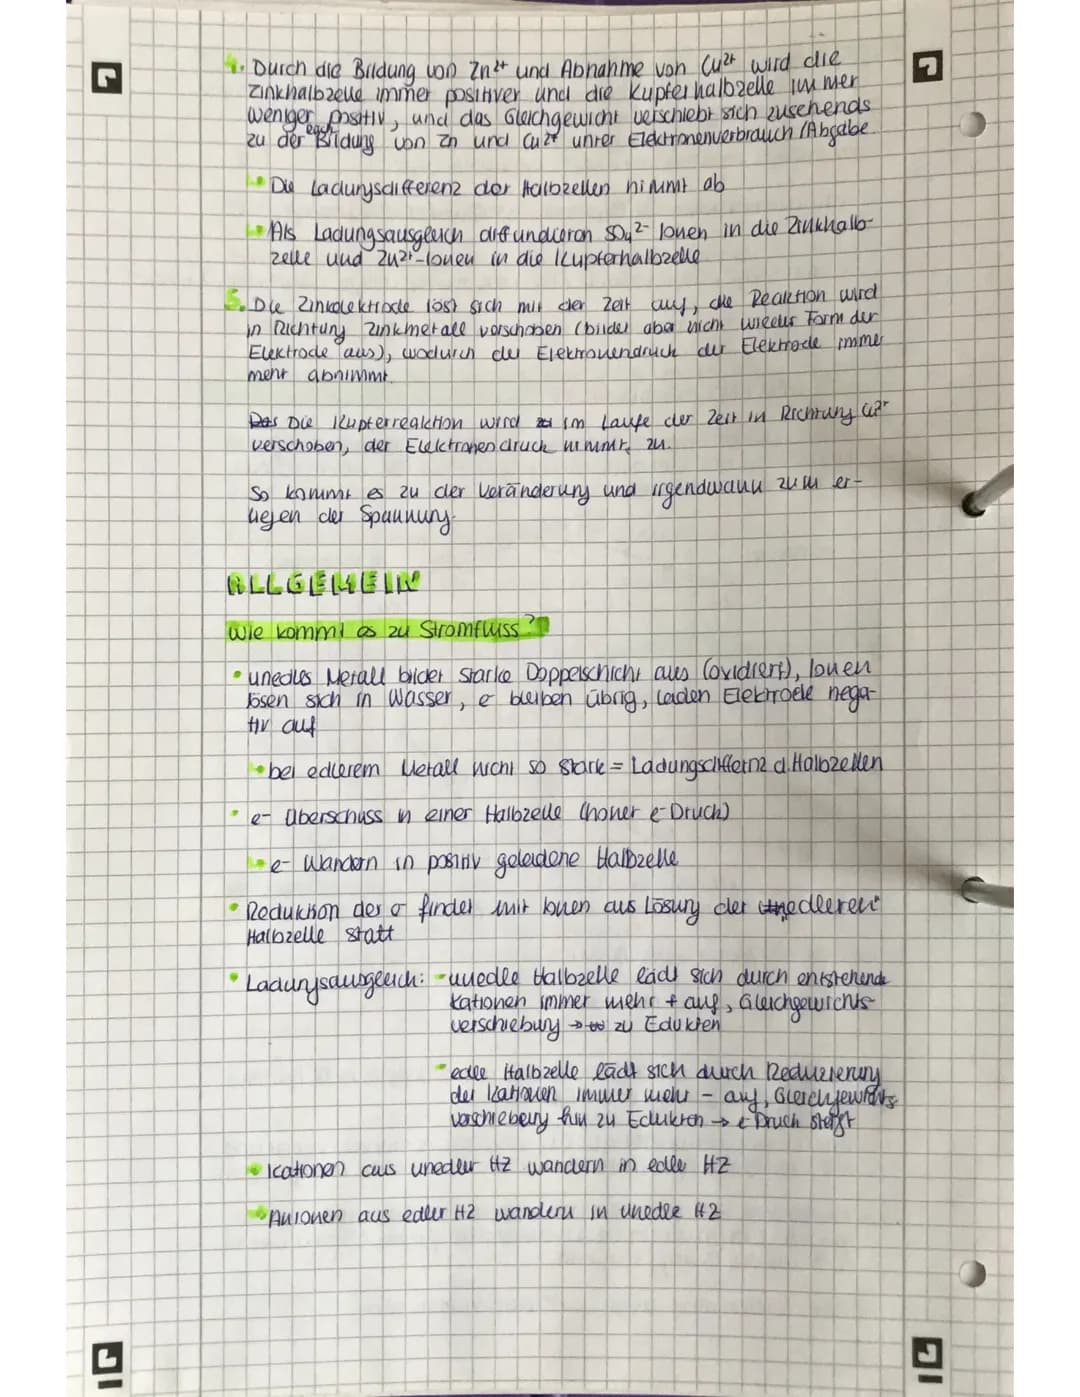 4. Durch die Bildung von Zn²⁺ und Abnahme von Cu²⁺ wird die
Zinkhalbzelle immer positiver und die Kupferhalbzelle immer
weniger positiv, und das Gleichgewicht verschiebt sich zusehends
zu der Bildung von Zn und Cu²⁺ unter Elektronenverbrauch/Abgabe
Die Ladungsdifferenz der Halbzellen nimmt ab
Als Ladungsausgleich diffundieren SO₄²⁻ Ionen in die Zinkhalb-
zelle und Zn²⁺-Ionen in die Kupferhalbzelle
5. Die Zinkelektrode löst sich mit der Zeit auf, die Reaktion wird
in Richtung Zinkmetall verschoben (bildet aber nicht wieder Form der
Elektrode aus), wodurch der Elektronendruck der Elektrode immer
mehr abnimmt.
Die Kupferreaktion wird im Laufe der Zeit in Richtung Cu²⁺
verschoben, der Elektronendruck nimmt zu.
So kommt es zu der Veränderung und irgendwann zum er-
liegen der Spannung.
ALLGEMEIN
Wie kommt es zu Stromfluss?
• unedles Metall bildet starke Doppelschicht aus (oxidiert), Ionen
lösen sich in Wasser, e⁻ bleiben übrig, laden Elektrode nega-
tiv auf
bei edlerem Metall nicht so stark = Ladungsdiffernz d. Halbzellen
• e- Überschuss in einer Halbzelle (hoher e-Druch)
e- Wandern in positiv geladene Halbzelle
• Reduktion der e⁻ findet mit Ionen aus Lösung der edleren
Halbzelle statt
• Ladungsausgleich: - unedle Halbzelle lädt sich durch entstehende
Kationen immer mehr + auf, Gleichgewichts-
verschiebung → zu Edukten
- edle Halbzelle lädt sich durch Reduzierung
der Kationen immer mehr - auf, Gleichgewichts-
verschiebung hin zu Edukten → e⁻ Druch steigt
Kationen aus unedler HZ wandern in edle HZ
Anionen aus edler HZ wandern in unedle HZ